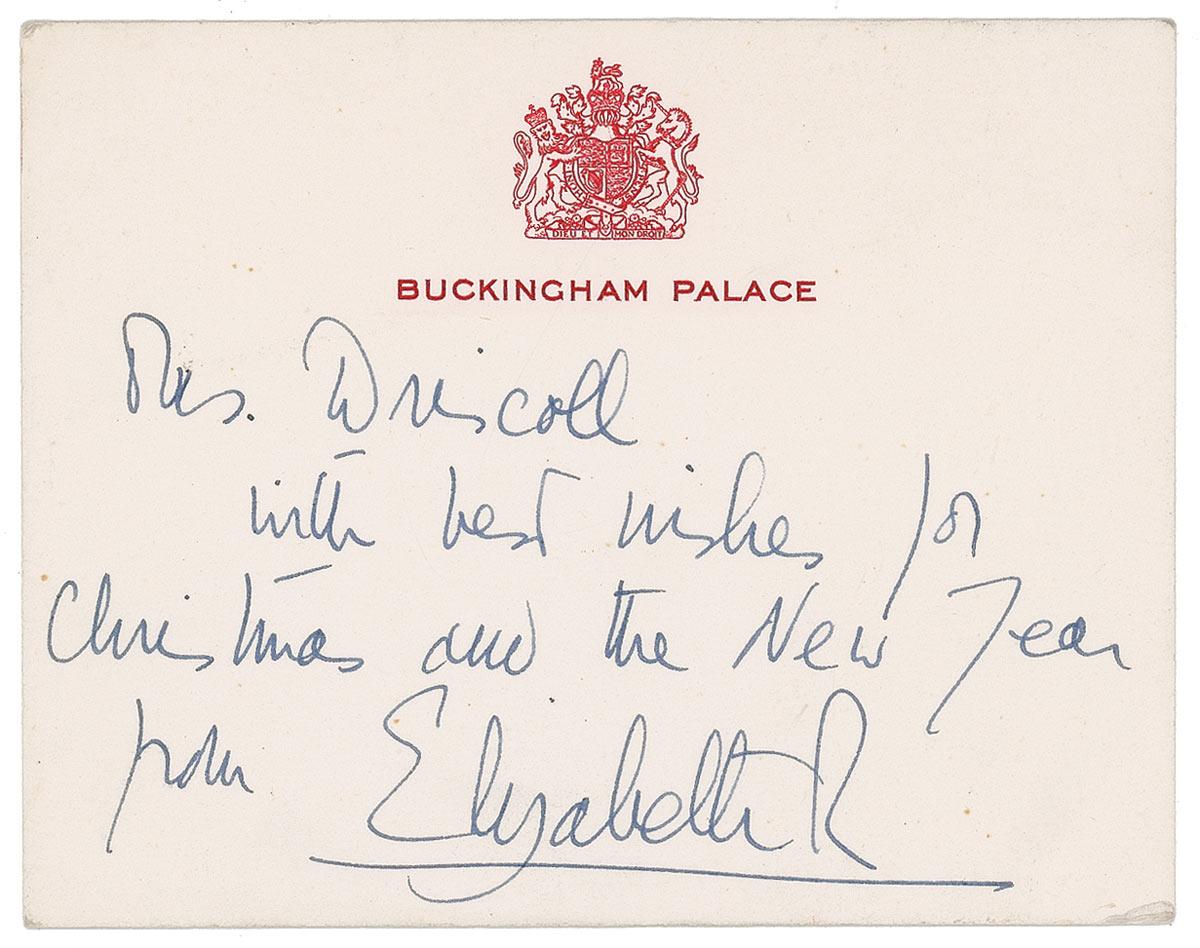 DIEU ET MON DROIT
BUCKINGHAM PALACE
Mrs. Driscoll
with best wishes for
Christmas and the New Year
from Elizabeth R